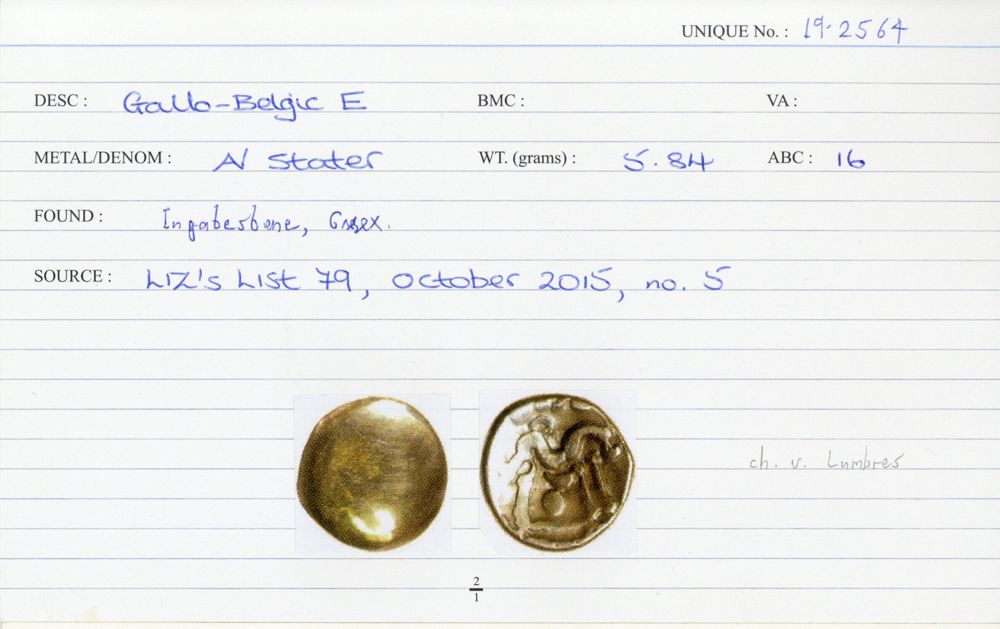 UNIQUE No. : 19-2564
DESC : Gallo-Belgic E BMC : VA :
METAL/DENOM : AV Stater WT. (grams) : 5.84 ABC : 16
FOUND : Ingatestone, Essex.
SOURCE : LIZ's LIST 79, October 2015, no. 5
ch. v. Lumbres
2
1